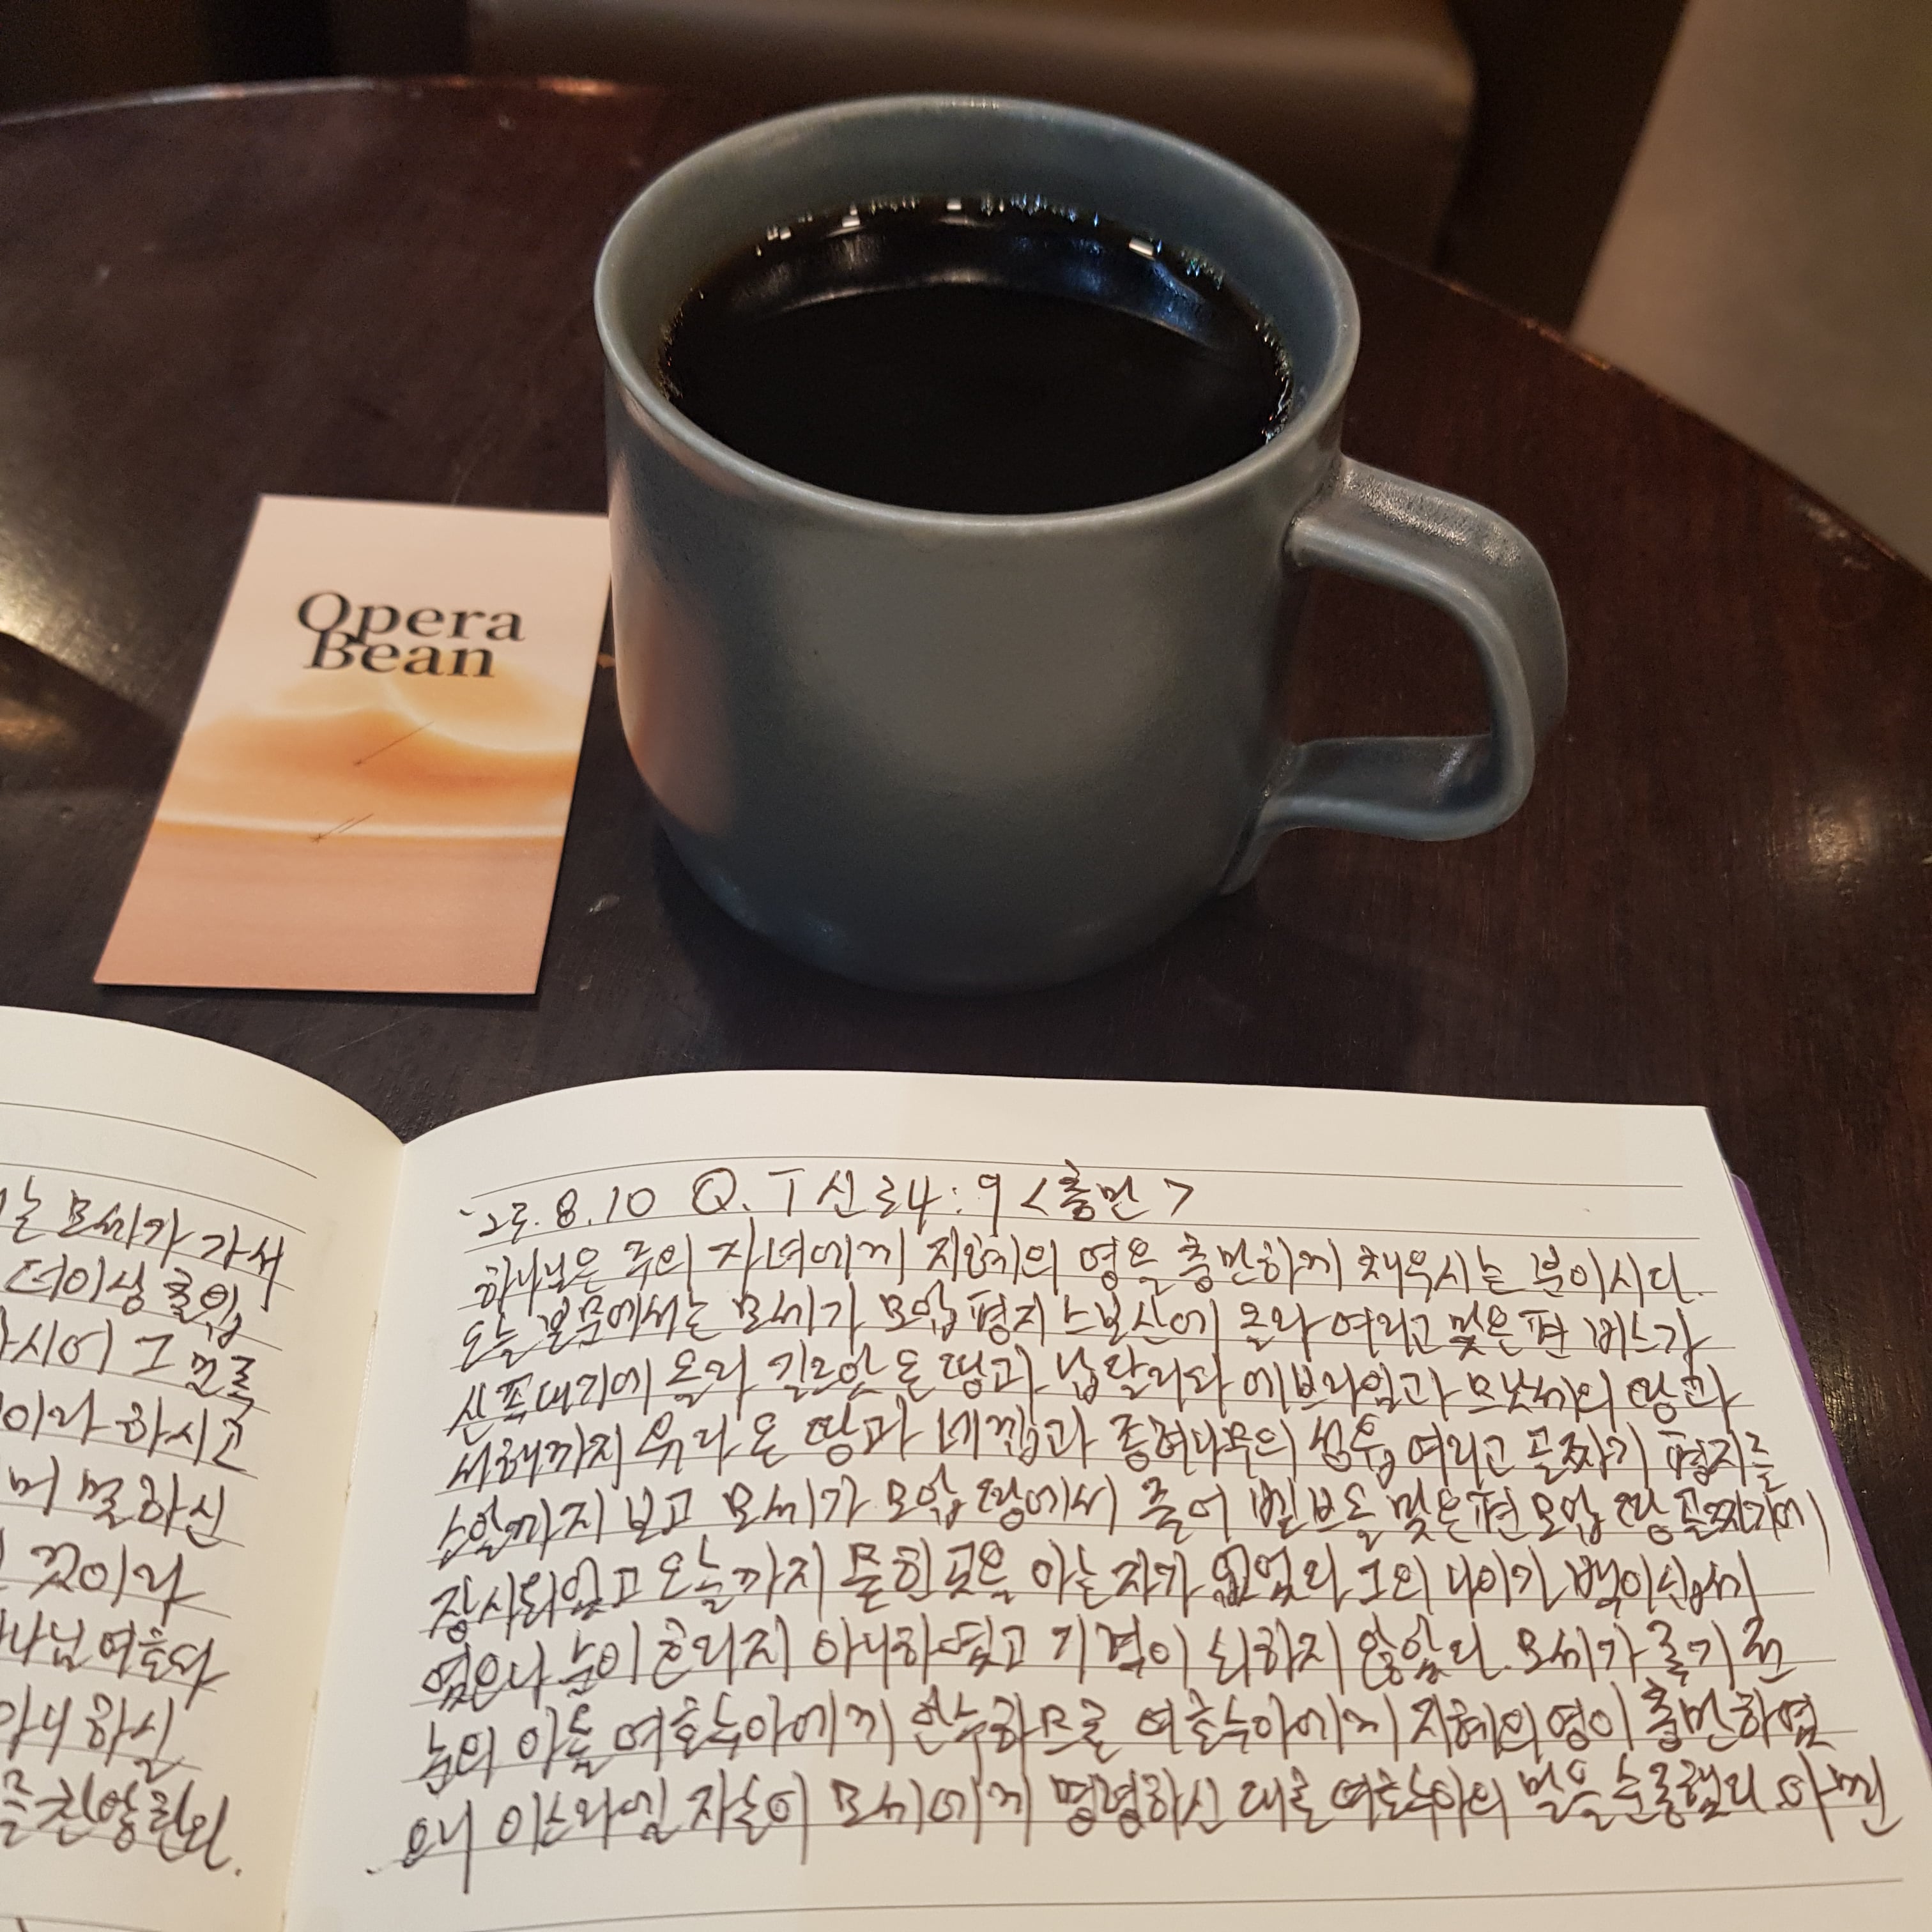 Opera
Bean
는 모세가 가서
더이상 출입
하시어 그 먼록
이라 하시고
머 멸하신
것이라
나님 여호와
아니 하실
를 찬양한다.
'25.8.10 Q.T 신34:9 <충만>
하나님은 주의 자녀에게 지혜의 영을 충만하게 채우시는 분이시다.
오늘 본문에서는 모세가 모압평지 느보산에 올라 여리고 맞은편 비스가
산 꼭대기에 올라 길르앗 온 땅과 납달리와 에브라임과 므낫세의 땅과
서해까지 유다 온 땅과 네겝과 종려나무의 성읍 여리고 골짜기 평지를
소알까지 보고 모세가 모압 땅에서 죽어 벧브올 맞은편 모압 땅 골짜기에
장사되었고 오늘까지 묻힌 곳을 아는 자가 없었다. 그의 나이가 백이십세
였으나 눈이 흐리지 아니하였고 기력이 쇠하지 않았다. 모세가 죽기 전
눈의 아들 여호수아에게 안수하므로 여호수아에게 지혜의 영이 충만하였
으니 이스라엘 자손이 모세에게 명령하신 대로 여호수아의 말을 순종했다. 어쩌면